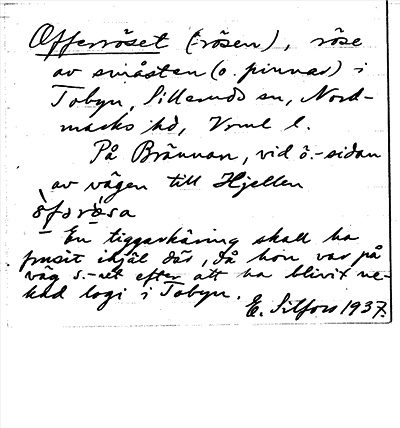 Offerröset (-rösen), röse
av småsten (o. pinnar) i
Tobyn, Sillerud sn, Nord-
marks hd, Vrml l.
På Brännan, vid ö.-sidan
av vägen till Hjellen
òfərø̀sa
En tiggarkäring skall ha
frusit ihjäl där, då hon var på
väg s.-ut efter att ha blivit ne-
kad logi i Tobyn.
E. Silfors 1937.